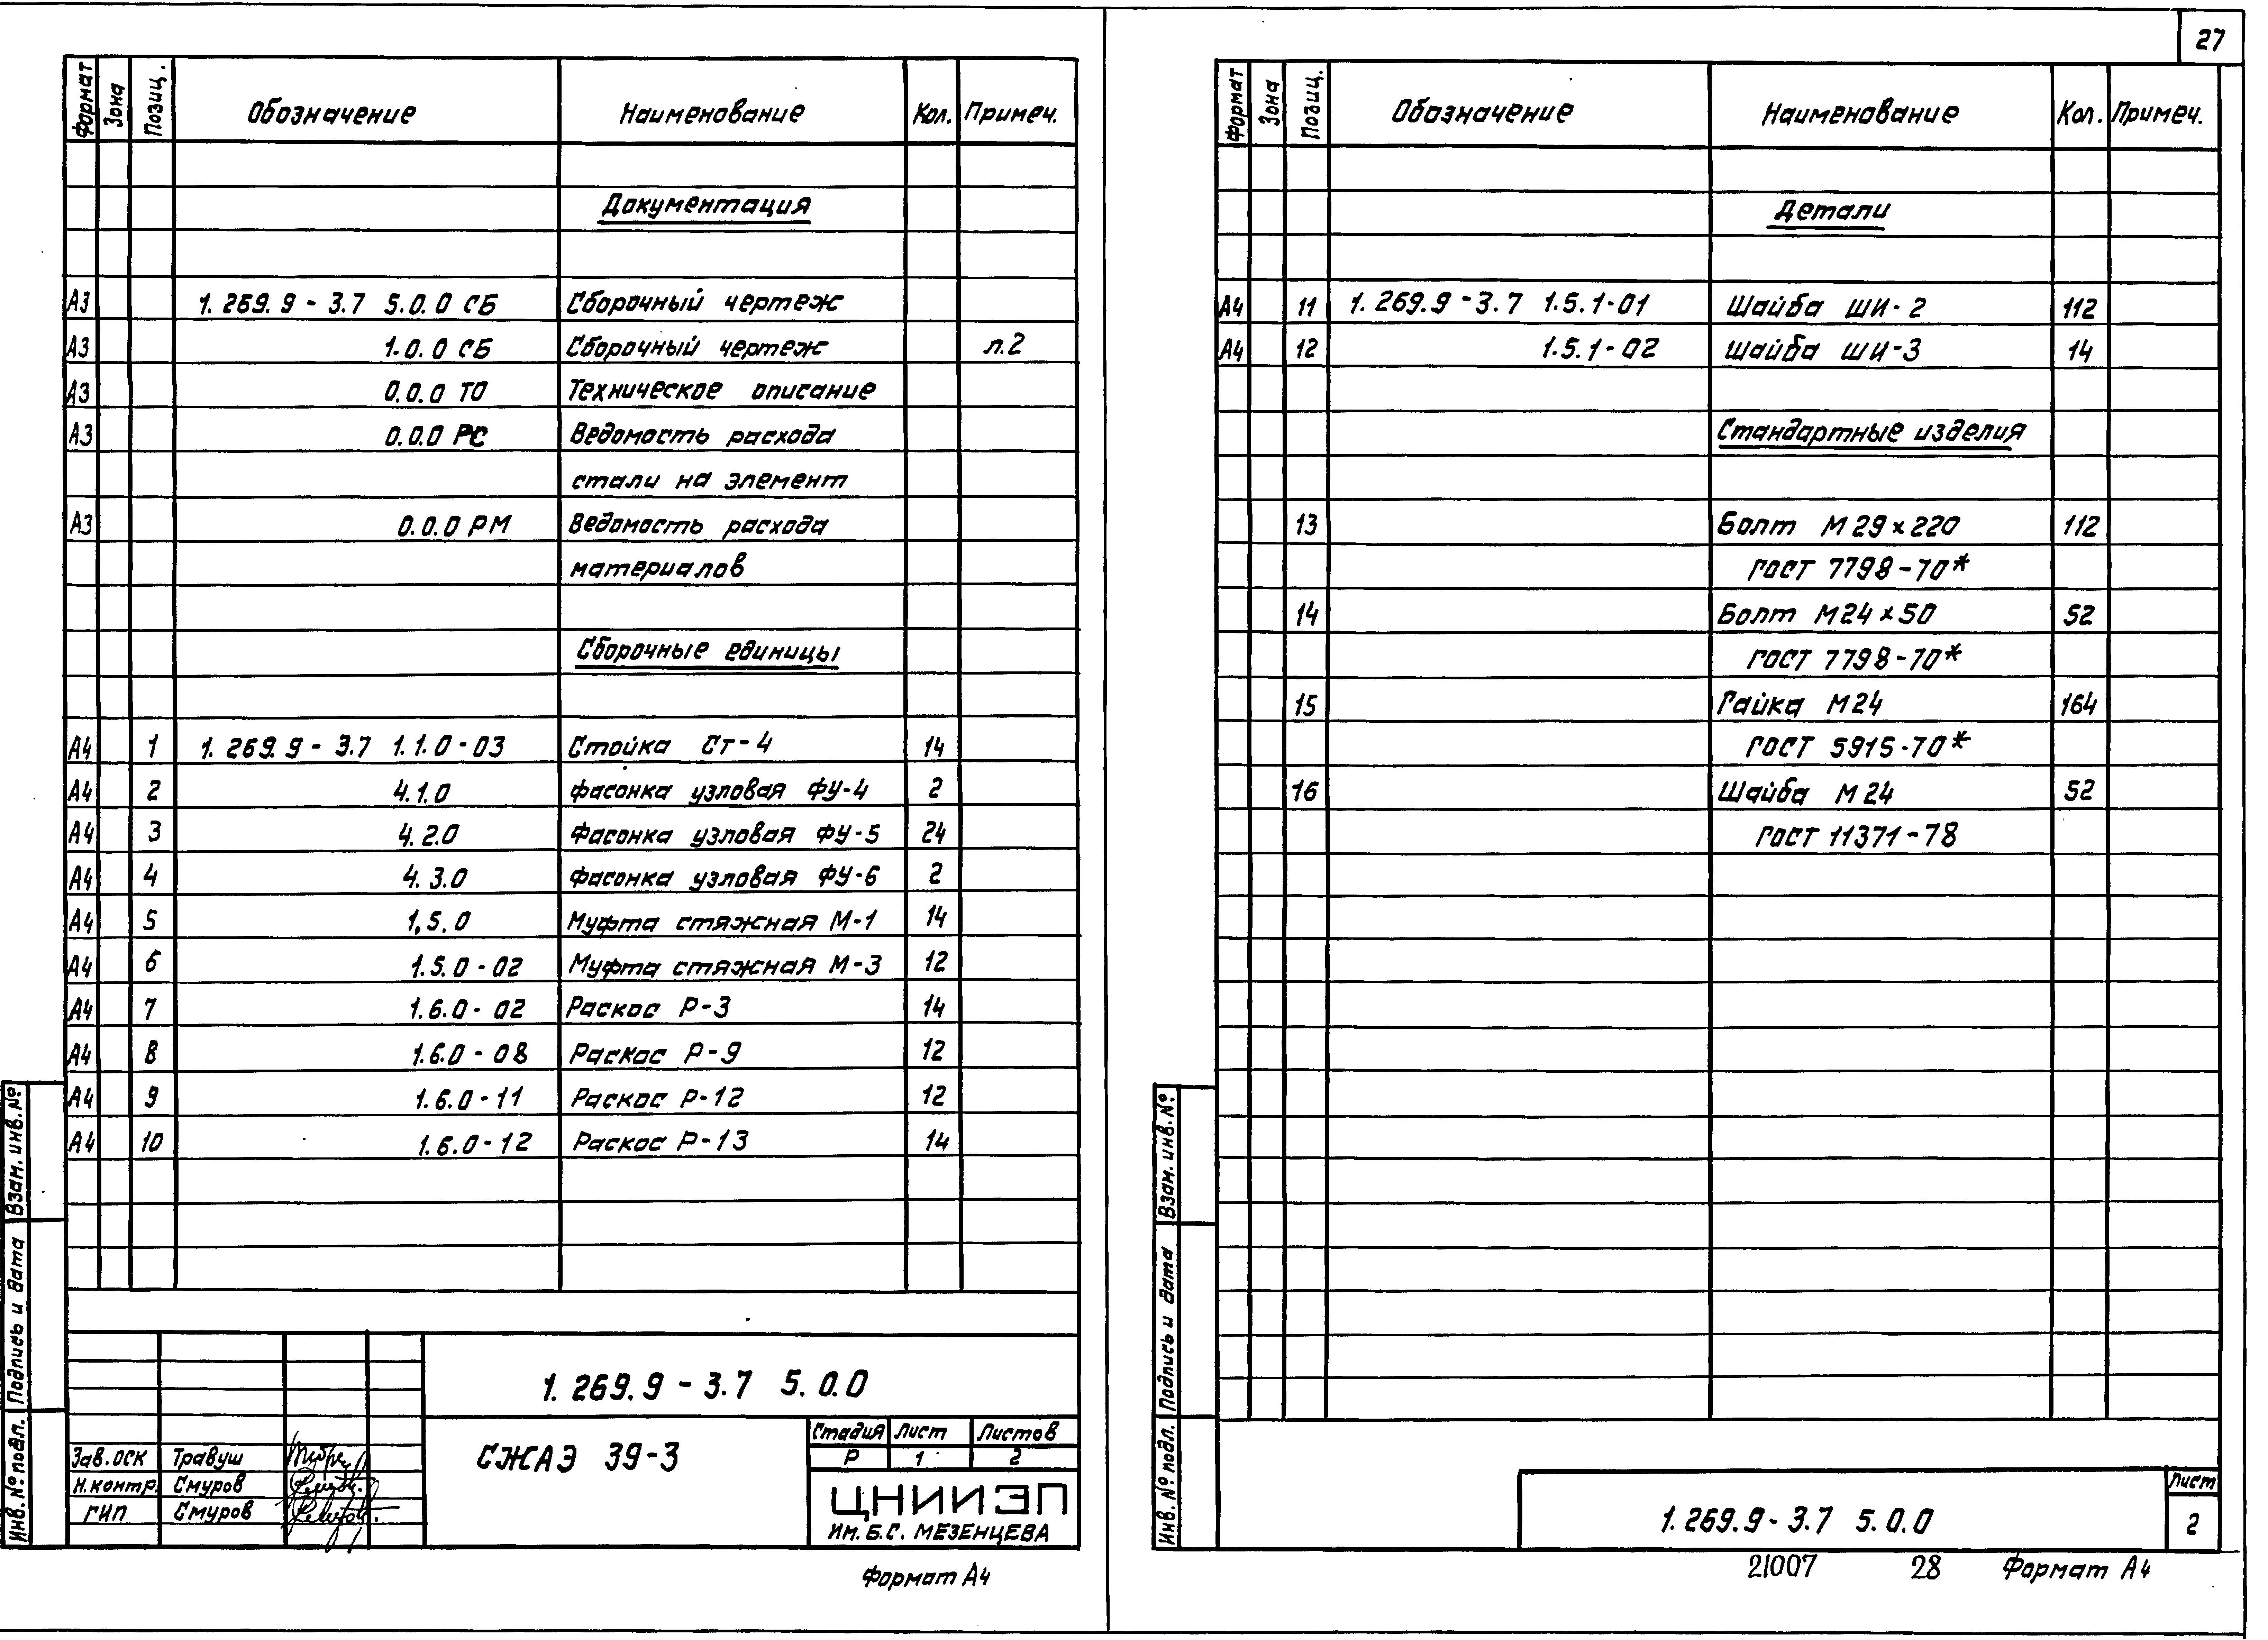 27
Формат Зона Позиц. Обозначение Наименование Кол. Примеч.
Документация
А3 1.269.9-3.7 5.0.0 СБ Сборочный чертеж
А3 1.0.0 СБ Сборочный чертеж л.2
А3 0.0.0 ТО Техническое описание
А3 0.0.0 РС Ведомость расхода
стали на элемент
А3 0.0.0 РМ Ведомость расхода
материалов
Сборочные единицы
А4 1 1.269.9-3.7 1.1.0-03 Стойка Ст-4 14
А4 2 4.1.0 Фасонка узловая ФУ-4 2
А4 3 4.2.0 Фасонка узловая ФУ-5 24
А4 4 4.3.0 Фасонка узловая ФУ-6 2
А4 5 1.5.0 Муфта стяжная М-1 14
А4 6 1.5.0-02 Муфта стяжная М-3 12
А4 7 1.6.0-02 Раскос Р-3 14
А4 8 1.6.0-08 Раскос Р-9 12
А4 9 1.6.0-11 Раскос Р-12 12
А4 10 1.6.0-12 Раскос Р-13 14
Взам. инв. №
Подпись и дата
Инв. № подл.
1.269.9-3.7 5.0.0
Зав. ОСК Травуш
Н.контр. Смуров
ГИП Смуров
СЖАЭ 39-3
Стадия Лист Листов
Р 1 2
ЦНИИЭП
ИМ. Б.С. МЕЗЕНЦЕВА
Формат А4
Формат Зона Позиц. Обозначение Наименование Кол. Примеч.
Детали
А4 11 1.269.9-3.7 1.5.1-01 Шайба ШИ-2 112
А4 12 1.5.1-02 Шайба ШИ-3 14
Стандартные изделия
13 Болт М29х220 112
ГОСТ 7798-70*
14 Болт М24х50 52
ГОСТ 7798-70*
15 Гайка М24 164
ГОСТ 5915-70*
16 Шайба М24 52
ГОСТ 11371-78
Взам. инв. №
Подпись и дата
Инв. № подл.
1.269.9-3.7 5.0.0
Лист
2
21007 28 Формат А4